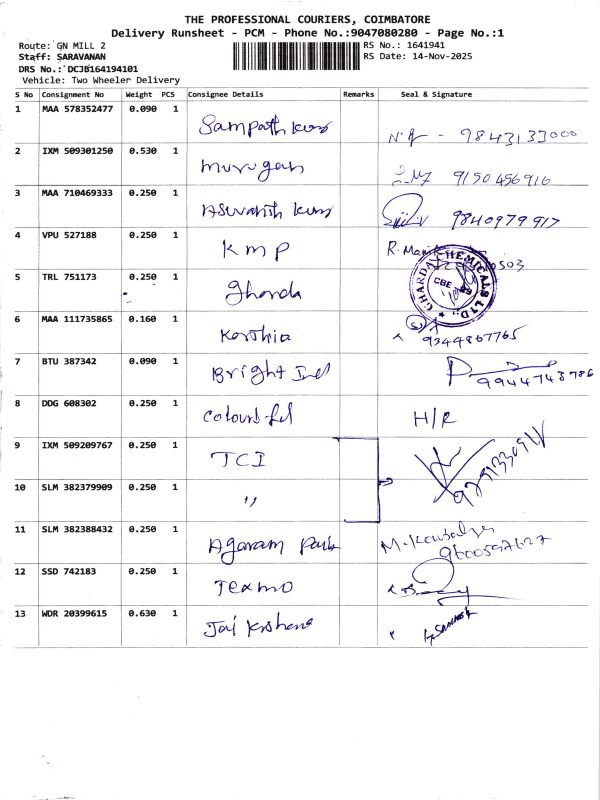 THE PROFESSIONAL COURIERS, COIMBATORE
Delivery Runsheet - PCM - Phone No.:9047080280 - Page No.:1
Route: GN MILL 2
RS No.: 1641941
Staff: SARAVANAN
RS Date: 14-Nov-2025
DRS No.: DCJB164194101
Vehicle: Two Wheeler Delivery
S No Consignment No Weight PCS Consignee Details Remarks Seal & Signature
1 MAA 578352477 0.090 1 Sampath Kum 9843133000
2 IXM 509301250 0.530 1 Murugan 9150456916
3 MAA 710469333 0.250 1 Aswanth Kum 9840979917
4 VPU 527188 0.250 1 KMP R. Mani
5 TRL 751173 0.250 1 Gharda
GHARDA CHEMICALS LTD., CBE
6 MAA 111735865 0.160 1 Karthia 9344867765
7 BTU 387342 0.090 1 Bright Ind 9944743786
8 DDG 608302 0.250 1 Colours fel H/R
9 IXM 509209767 0.250 1 TCI
10 SLM 382379909 0.250 1 〃
11 SLM 382388432 0.250 1 Agaram
12 SSD 742183 0.250 1 Texmo
13 WDR 20399615 0.630 1 Jai Krshana